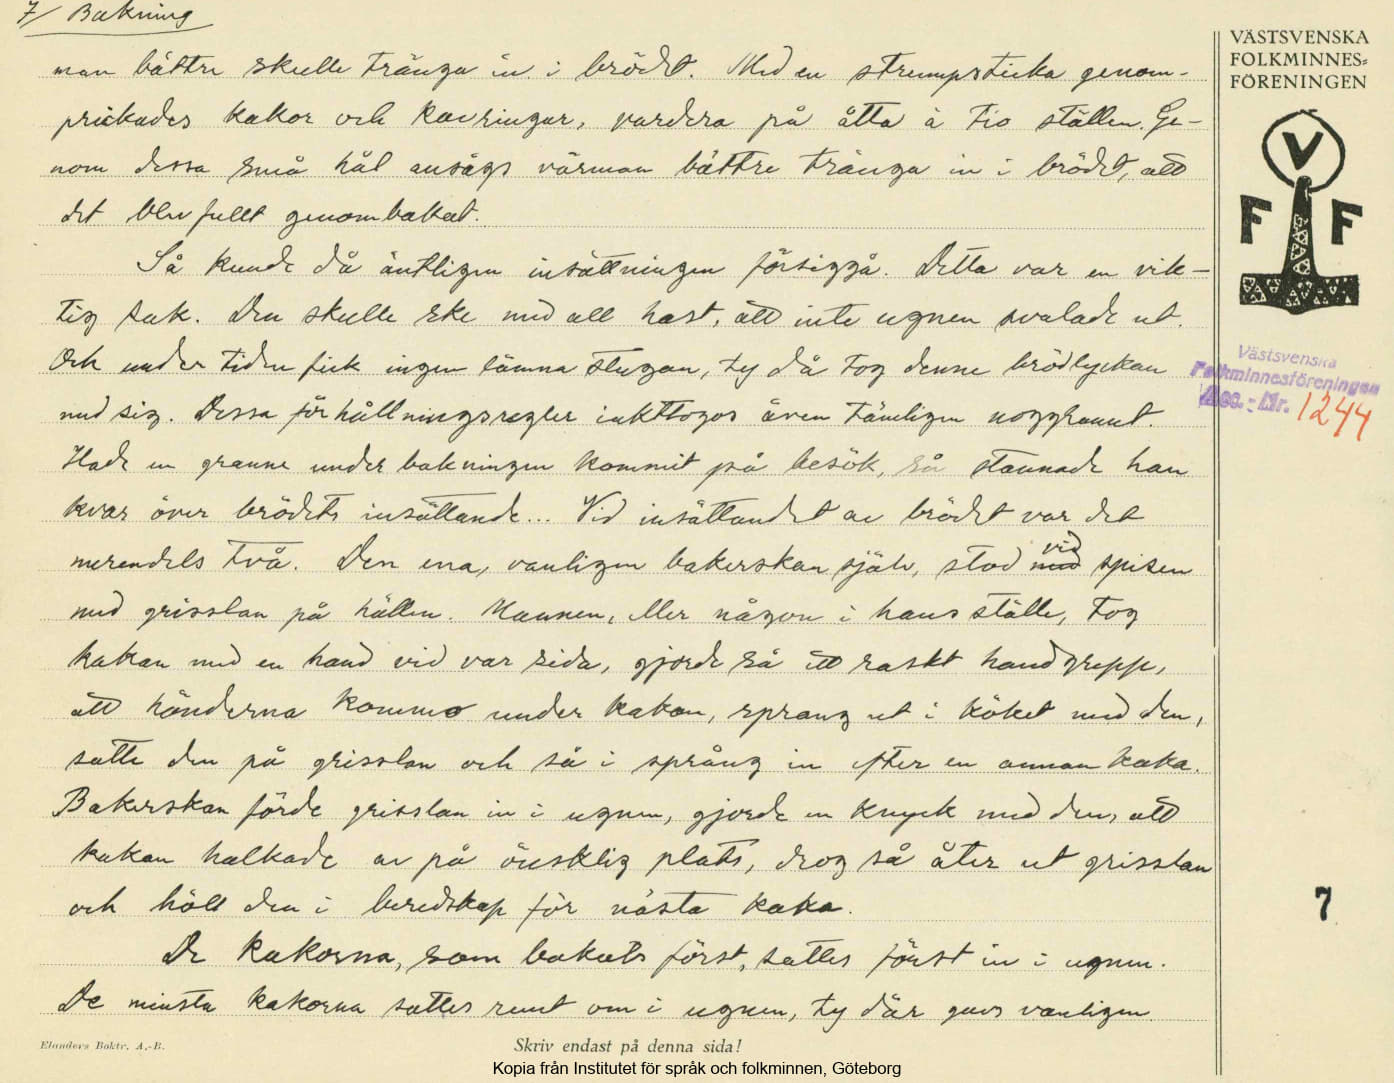 7/ Bakning
man bättre skulle tränga in i brödet. Med en strumpsticka genom-
prickades kakor och kavringar, vardera på åtta à tio ställen. Ge-
nom dessa små hål ansågs värman bättre tränga in i brödet, att
det blev fullt genombakat.
Så kunde då äntligen insättningen försiggå. Detta var en vik-
tig sak. Den skulle ske med all hast, att inte ugnen svalade ut.
Och under tiden fick ingen lämna stugan, ty då tog denne brödlyckan
med sig. Dessa förhållningsregler iakttogos även tämligen noggrannt.
Hade en granne under bakningen kommit på besök, så stannade han
kvar över brödets insättande... Vid insättandet av brödet var det
merendels två. Den ena, vanligen bakerskan själv, stod med vid spisen
med grisslan på hällen. Mannen, eller någon i hans ställe, tog
kakan med en hand vid var sida, gjorde så ett raskt handgrepp,
att händerna kommo under kakan, sprang ut i köket med den,
satte den på grisslan och så i språng in efter en annan kaka.
Bakerskan förde grisslan in i ugnen, gjorde en knyck med den, att
kakan halkade av på önsklig plats, drog så åter ut grisslan
och höll den i beredskap för nästa kaka.
De kakorna, som bakats först, sattes först in i ugnen.
De minsta kakorna sattes runt om i ugnen, ty där gavs vanligen
Elanders Boktr. A.-B.
Skriv endast på denna sida!
Kopia från Institutet för språk och folkminnen, Göteborg
VÄSTSVENSKA
FOLKMINNES=
FÖRENINGEN
V
F F
Västsvenska
Folkminnesföreningen
Acc.-Nr. 1244
7